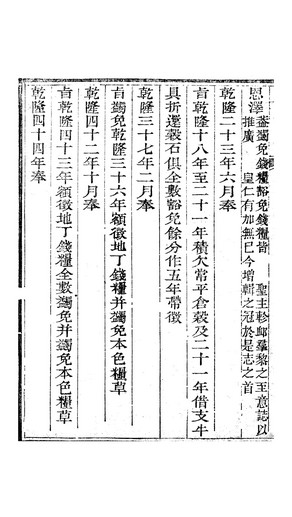 恩澤
蓋蠲免錢糧豁免錢糧皆 聖主軫䘏羣黎之至意誌以
推廣 皇仁有加無已今增輯之冠於是志之首
乾隆二十三年六月奉
旨乾隆十八年至二十一年積欠常平倉穀及二十一年借支牛
具折還穀石俱全數豁免餘分作五年帶徵
乾隆三十七年二月奉
旨蠲免乾隆三十六年額徵地丁錢糧并蠲免本色糧草
乾隆四十二年十月奉
旨乾隆四十三年額徵地丁錢糧全數蠲免并蠲免本色糧草
乾隆四十四年奉